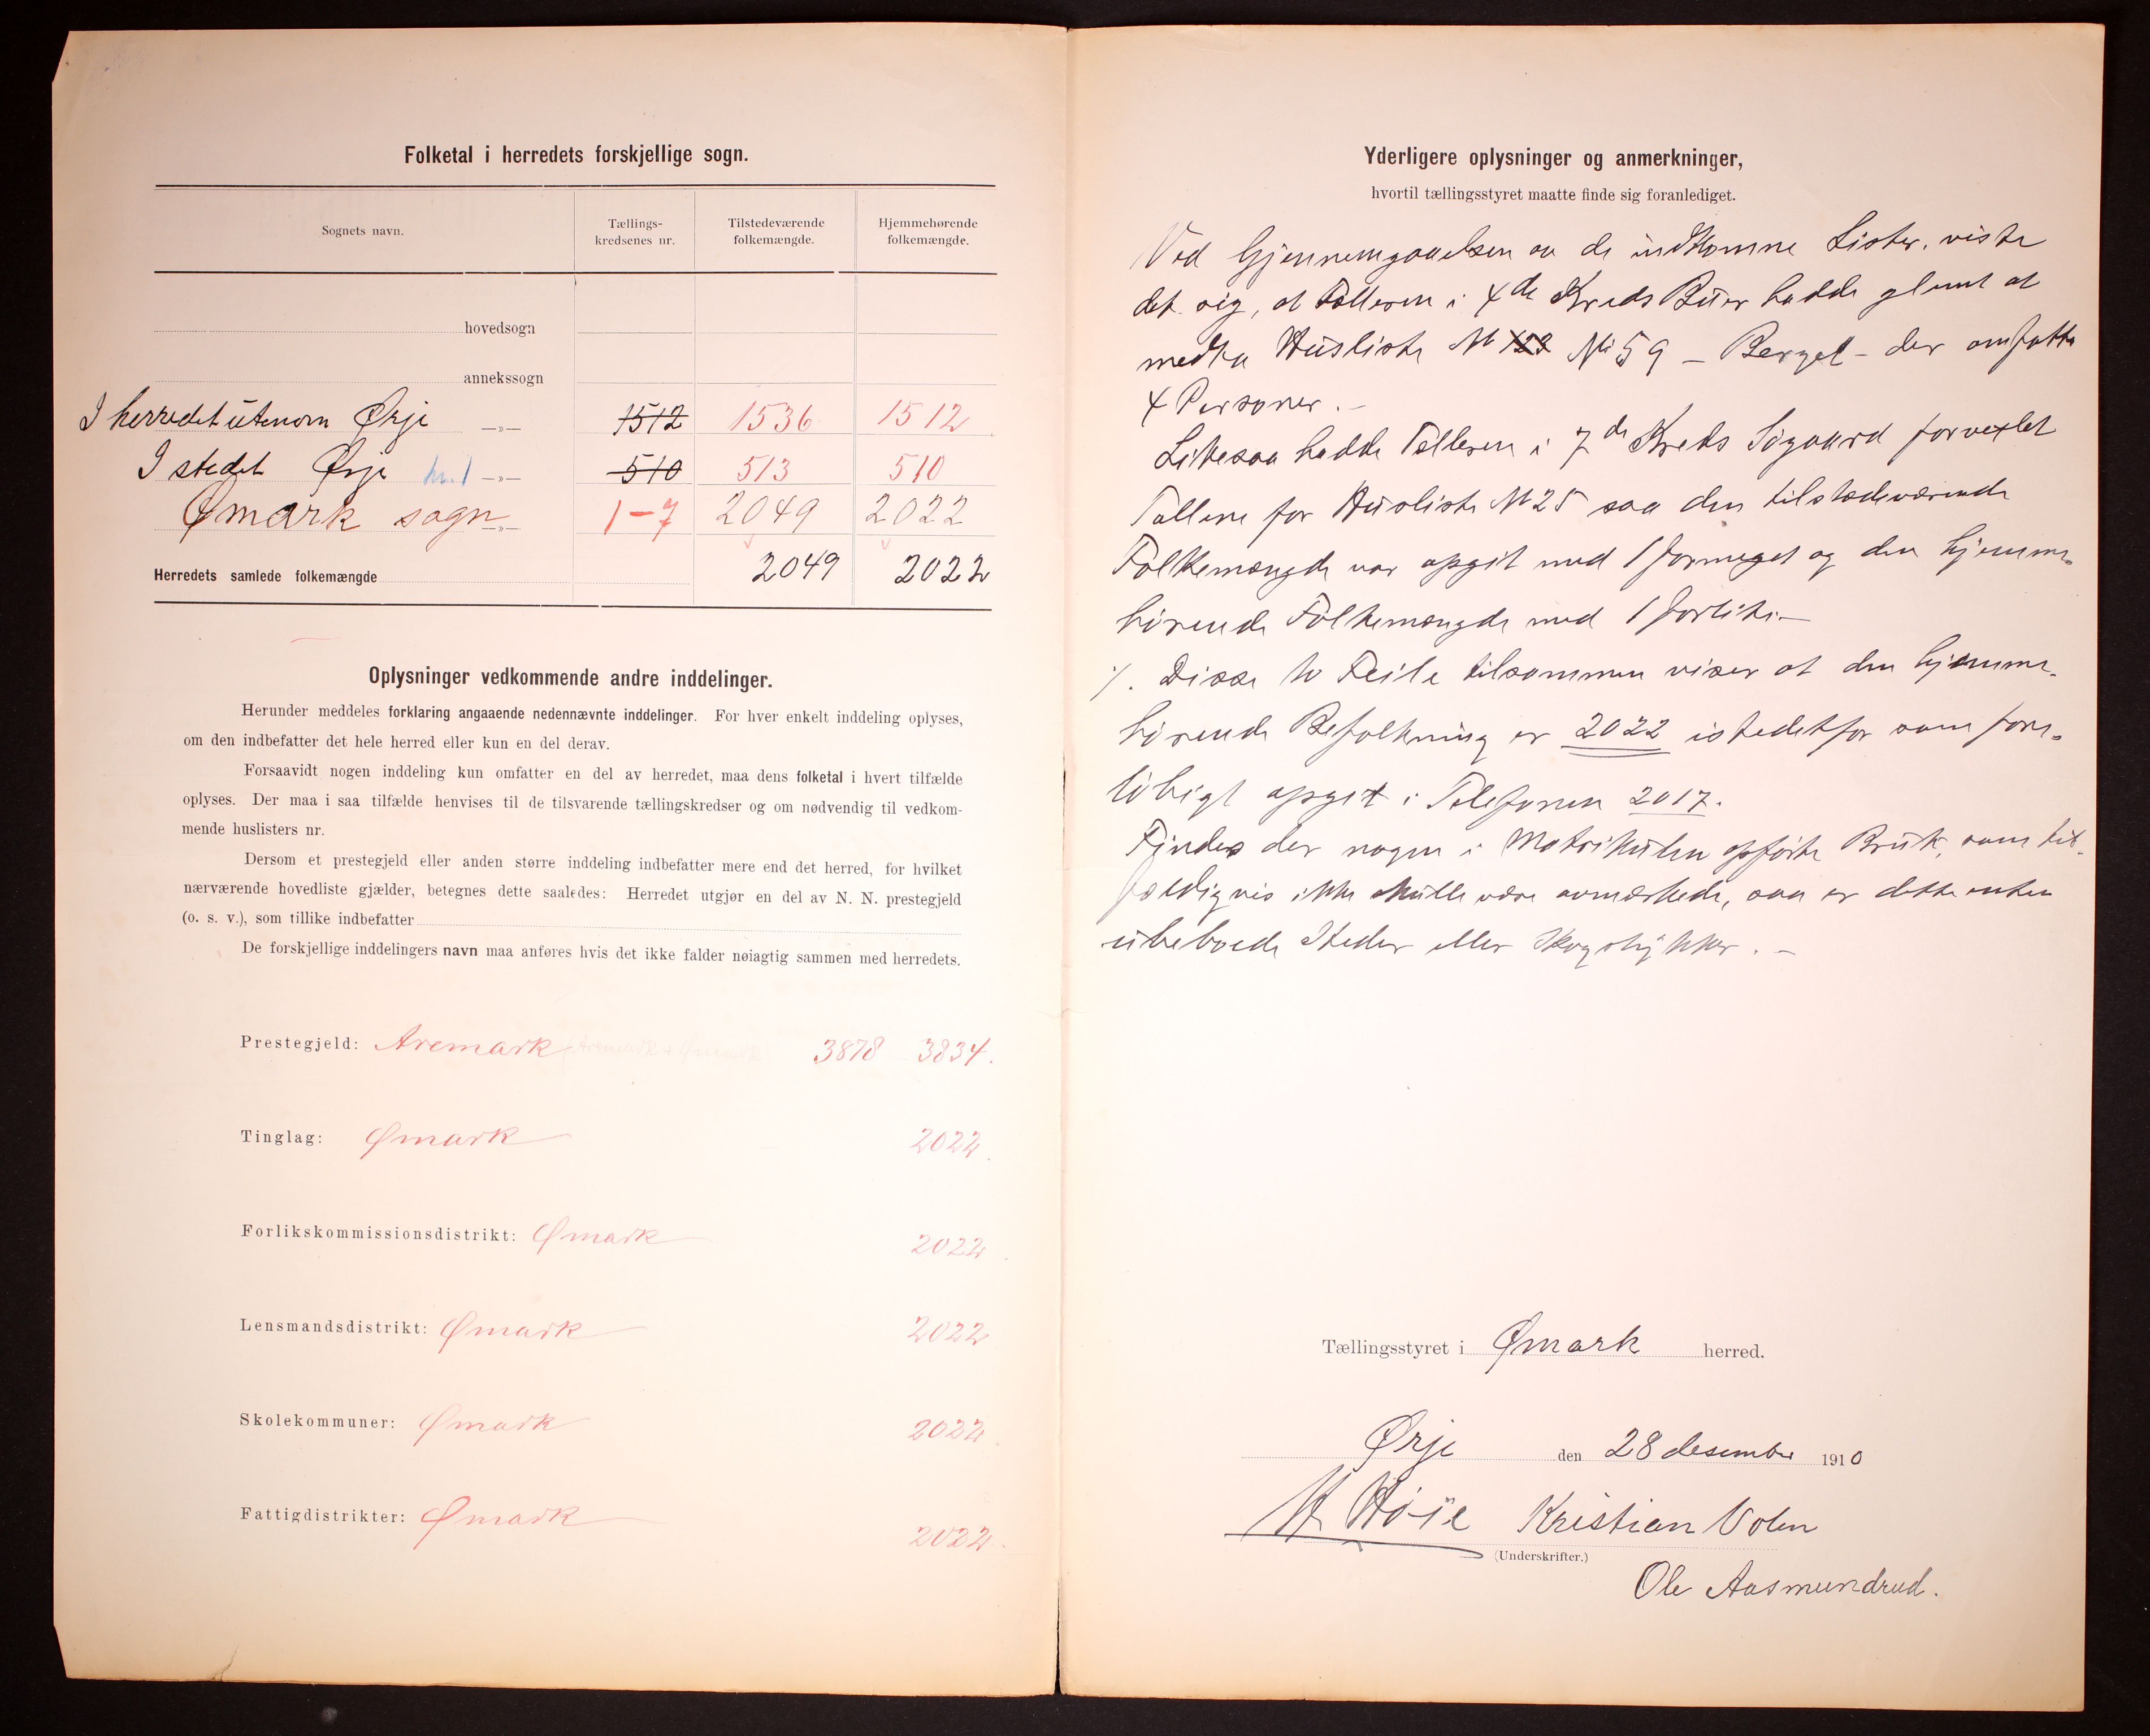 Folketal i herredets forskjellige sogn.
Sognets navn.
Tællings-
kredsenes nr.
Tilstedeværende
folkemængde.
Hjemmehørende
folkemængde.
hovedsogn
annekssogn
I herredet utenom Ørje —»— 1512 1536 1512
I stedet Ørje —»— 510 513 510
Ømark sogn —»— 1-7 2049 2022
Herredets samlede folkemængde 2049 2022
Oplysninger vedkommende andre inddelinger.
Herunder meddeles forklaring angaaende nedennævnte inddelinger. For hver enkelt inddeling oplyses,
om den indbefatter det hele herred eller kun en del derav.
Forsaavidt nogen inddeling kun omfatter en del av herredet, maa dens folketal i hvert tilfælde
oplyses. Der maa i saa tilfælde henvises til de tilsvarende tællingskredser og om nødvendig til vedkom-
mende huslisters nr.
Dersom et prestegjeld eller anden større inddeling indbefatter mere end det herred, for hvilket
nærværende hovedliste gjælder, betegnes dette saaledes: Herredet utgjør en del av N. N. prestegjeld
(o. s. v.), som tillike indbefatter
De forskjellige inddelingers navn maa anføres hvis det ikke falder nøiagtig sammen med herredets.
Prestegjeld: Aremark 3878 3834.
Tinglag: Ømark 2022.
Forlikskommissionsdistrikt: Ømark 2022.
Lensmandsdistrikt: Ømark 2022
Skolekommuner: Ømark 2022.
Fattigdistrikter: Ømark 2022.
Yderligere oplysninger og anmerkninger,
hvortil tællingsstyret maatte finde sig foranlediget.
Ved Gjennemgaaelsen av de indkomne Lister, viste
det sig, at Tælleren i 4de Kreds Buer hadde glemt at
medta Husliste No 123 No 59 – Berget – der omfatte
4 Personer. –
Likesaa hadde Tælleren i 7de Kreds Søgaard forvexlet
Tallene for Husliste No 25 saa den tilstedeværende
Folkemængde var opgit med 1 formeget og den hjemme-
hørende Folkemængde med 1 forlite. –
./. Disse to Feile tilsammen viser at den hjemme-
hørende Befolkning er 2022 istedetfor som fore-
løbigt opgit i Telefonen 2017.
Findes der nogen i Matrikulen opførte Bruk, som til-
fældigvis ikke skulle være avmærkede, saa er dette enten
ubeboede Steder eller Skogstykker. –
Tællingsstyret i Ømark herred.
Ørje den 28 desember 1910
Høie Kristian Volen
(Underskrifter.)
Ole Aasmundrud.